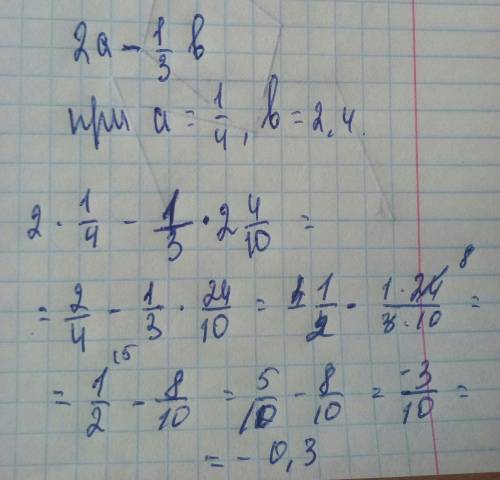 2a - 1/3 b
при a = 1/4, b = 2,4.
2 · 1/4 - 1/3 · 2 4/10 =
= 2/4 - 1/3 · 24/10 = 1/2 - 1·24/3·10 = 8
= 1/2 - 8/10 = 5/10 - 8/10 = -3/10 = 15
= - 0,3